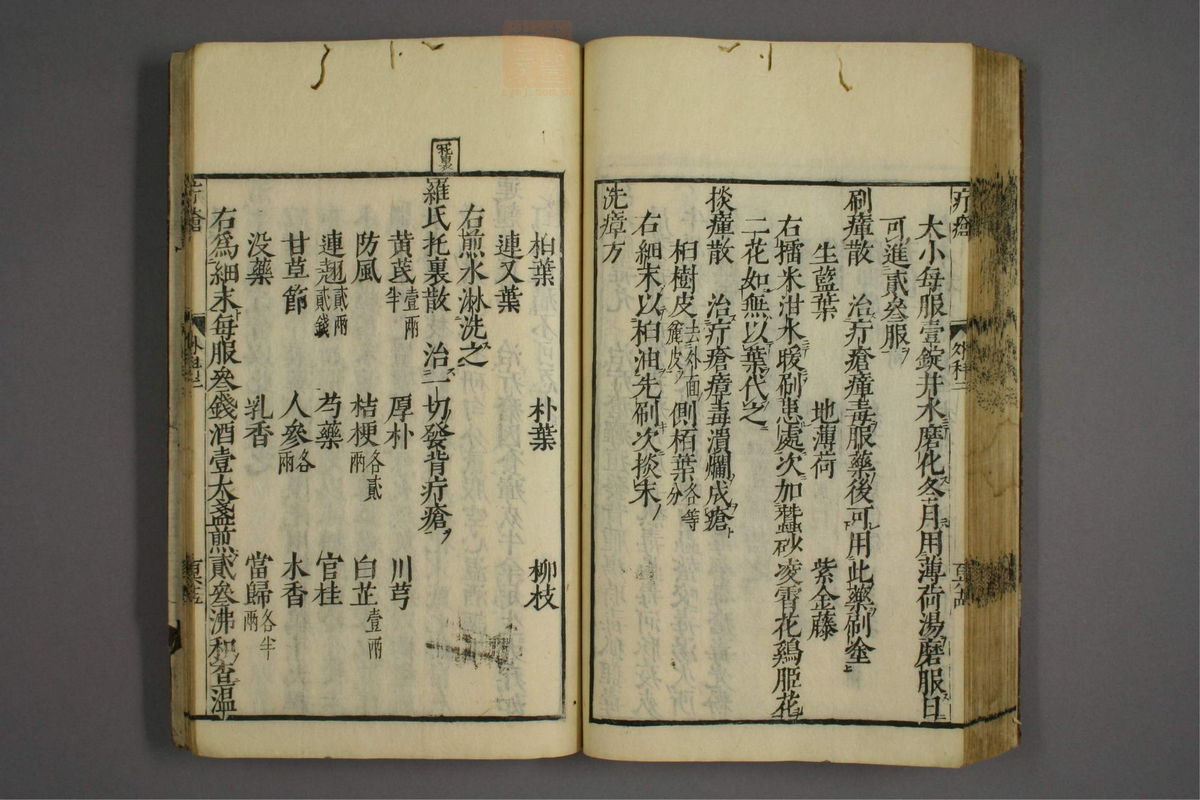 疔瘡
外科二
大小每服壹錠井水磨化冬月用薄荷湯磨服日
可進貳叄服
刷瘴散 治疔瘡瘴毒服藥後可用此藥刷塗
生藍葉 地薄荷 紫金藤
右擂米泔水暖刷患處次加蠶砂凌霄花鷄脛花
二花如無以葉代之
掞瘴散 治疔瘡瘴毒潰爛成瘡
桕樹皮去外面麄皮 側栢葉各等分
右細末以桕油先刷次掞末
洗瘴方
桕葉 朴葉 柳枝
連叉葉
右煎水淋洗之
托裏
羅氏托裏散 治一切發背疔瘡
黄芪壹兩半 厚朴 川芎
防風 桔梗各貳兩 白芷壹兩
連翹貳兩貳錢 芍藥 官桂
甘草節 人參各兩 木香
没藥 乳香 當歸各半兩
右爲細末每服叄錢酒壹大盞煎貳叄沸和查溫
疔瘡